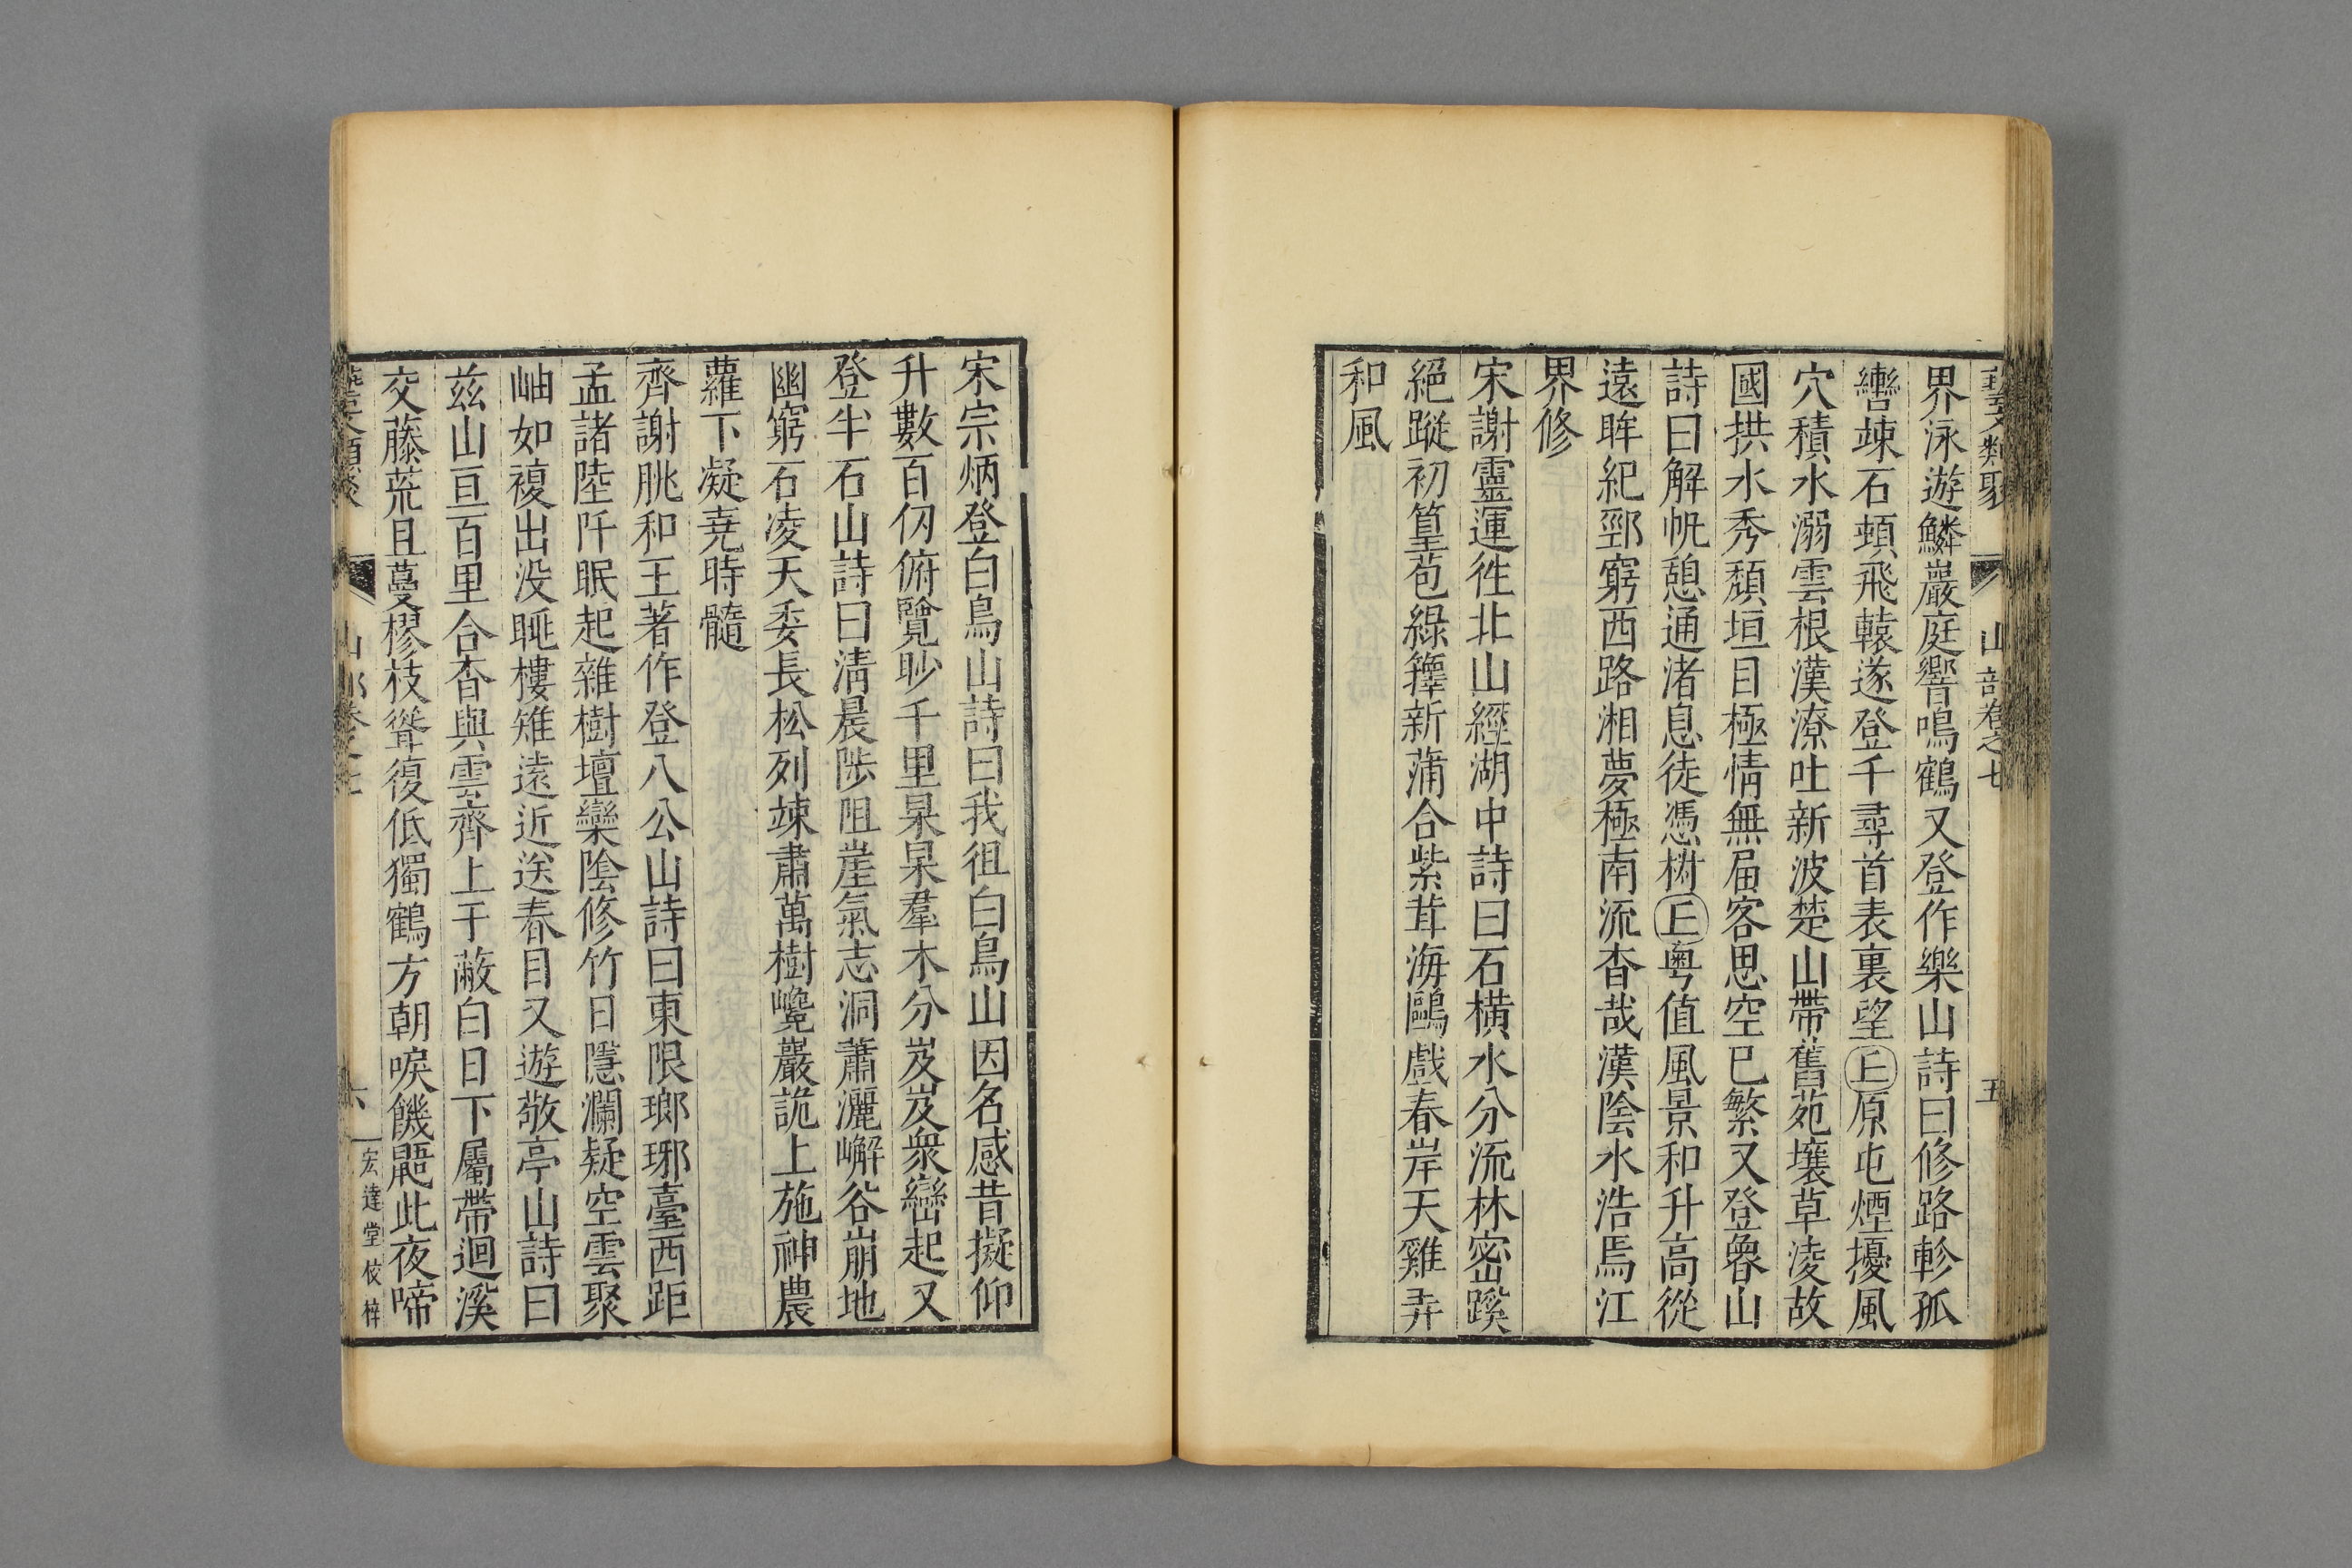 藝文類聚 山部卷之七 五
界泳遊鱗巖庭響鳴鶴又登作樂山詩曰修路軫孤
轡竦石頓飛轅遂登千尋首表裏望丘原屯煙擾風
穴積水溺雲根漢潦吐新波楚山帶舊苑壤草凌故
國拱水秀頹垣目極情無届客思空已繁又登魯山
詩曰解帆憩通渚息徒憑椅丘粵值風景和升高從
遠眸紀郢窮西路湘夢極南流杳哉漢陰水浩焉江
界修
宋謝靈運徃北山經湖中詩曰石橫水分流林密蹊
絕蹤初篁苞綠籜新蒲合紫茸海鷗戲春岸天雞弄
和風
宋宗炳登白鳥山詩曰我徂白鳥山因名感昔擬仰
升數百仞俯覽眇千里杲杲羣木分岌岌衆巒起又
登半石山詩曰清晨陟阻崖氣志洞蕭灑嶰谷崩地
幽窮石凌天委長松列竦肅萬樹巉巖詭上施神農
蘿下凝堯時髓
齊謝朓和王著作登八公山詩曰東限瑯琊臺西距
孟諸陸阡眠起雜樹壇欒陰修竹日隱澗疑空雲聚
岫如複出沒眺樓雉遠近送春目又遊敬亭山詩曰
茲山亘百里合杳與雲齊上干蔽白日下屬帶迴溪
交藤荒且蔓樛枝聳復低獨鶴方朝唳饑鼯此夜啼
藝文類聚 山部卷之七 六 宏達堂校梓